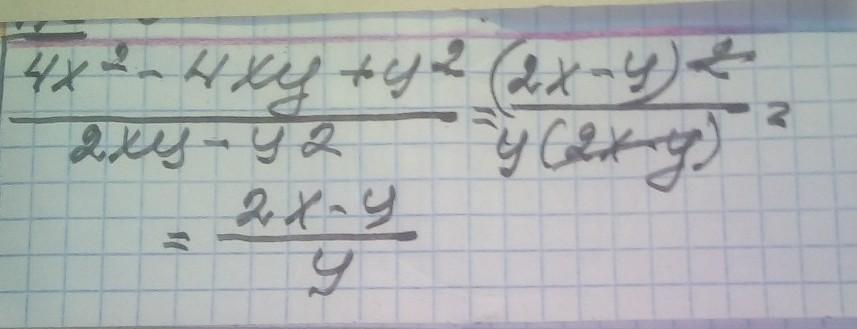 4x² - 4xy + y² / 2xy - y2 = (2x - y)² / y(2x - y) =
= 2x - y / y